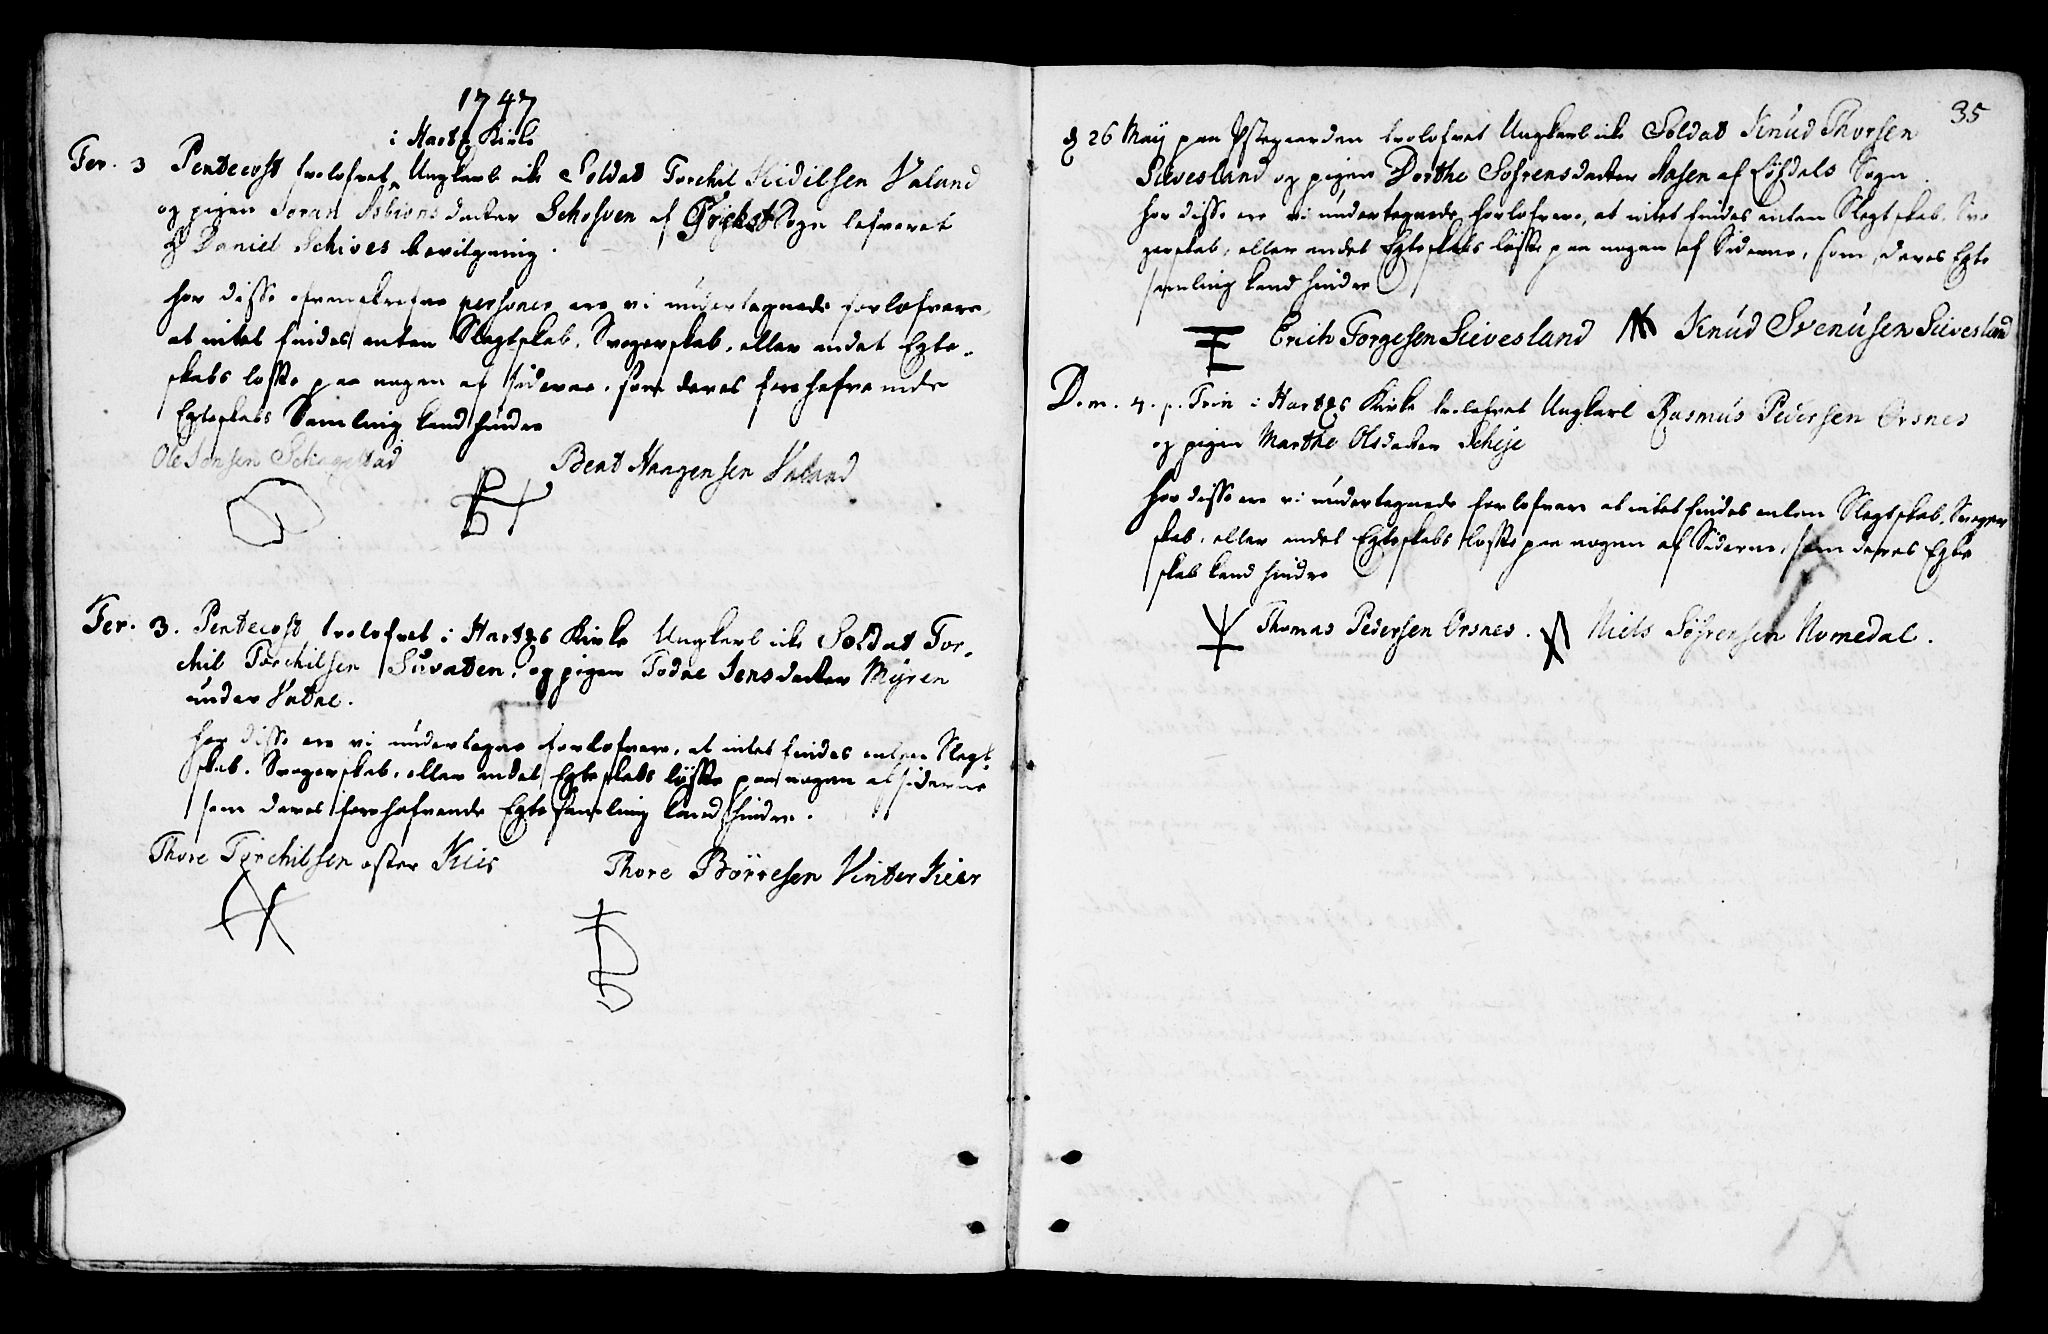 1747
i Hartz Kirke
Fer. 3 Pentecost trolofvet Ungkarl icke Soldat Torchil Kidilsen Valand
og pigen Joran Asbions datter Schofven af Sogn lefveret
H Daniel Schives bevilgning.
for disse personer ere vi undertegnede forlofvere,
at intet findes enten Slegtskab, Svogerskab, eller andet Egte-
skabs løfte paa nogen af siderne, som deres forehafvende
Egteskabs Samling kand hindre
Ole Jensen
Bent Haagensen Valand
Fer. 3. Pentecost trolofvet i Hartzs Kirke Ungkarl icke Soldat Tor-
chil Torchilsen Suvaten, og pigen Todne Jensdatter Myren
under Vatne.
for disse ere vi undertegne forlofvere, at intet findes enten Slegt-
skab, Svogerskab, eller andet Egteskabs løfte paa nogen af siderne
som deres forehafvende Egte samling kand hindre.
Thore Torchilsen oster Kiis
Thore Børresen Vinter Kier
35
d 26 Maij paa Østegaarden trolofvet Ungkarl icke Soldat Knud Thorsen
Sievesland og pigen Dorthe Sofrensdatter Aasen af Løfdals Sogn.
for disse ere vi undertegnede forlofvere, at intet findes enten Slegtskab, Svo
gerskab, eller andet Egteskabs løfte paa nogen af Siderne, som deres Egte
samling kand hindre
Erich Torgesen Sievesland Knud Svenusen Sievesland
Dom. 4. p. Trin i Hartzs Kirke trolofvet Ungkarl Rasmus Pedersen Orsnes
og pigen Marthe Olsdatter Scheje
for disse ere vi undertegnede forlofvere at intet findes enten Slegtskab, Svoger
skab, eller andet Egteskabs løfte paa nogen af Siderne, som deres Egte
skab kand hindre
Thomas Pedersen Orsnes. Niels Søfrensen Nomedal.